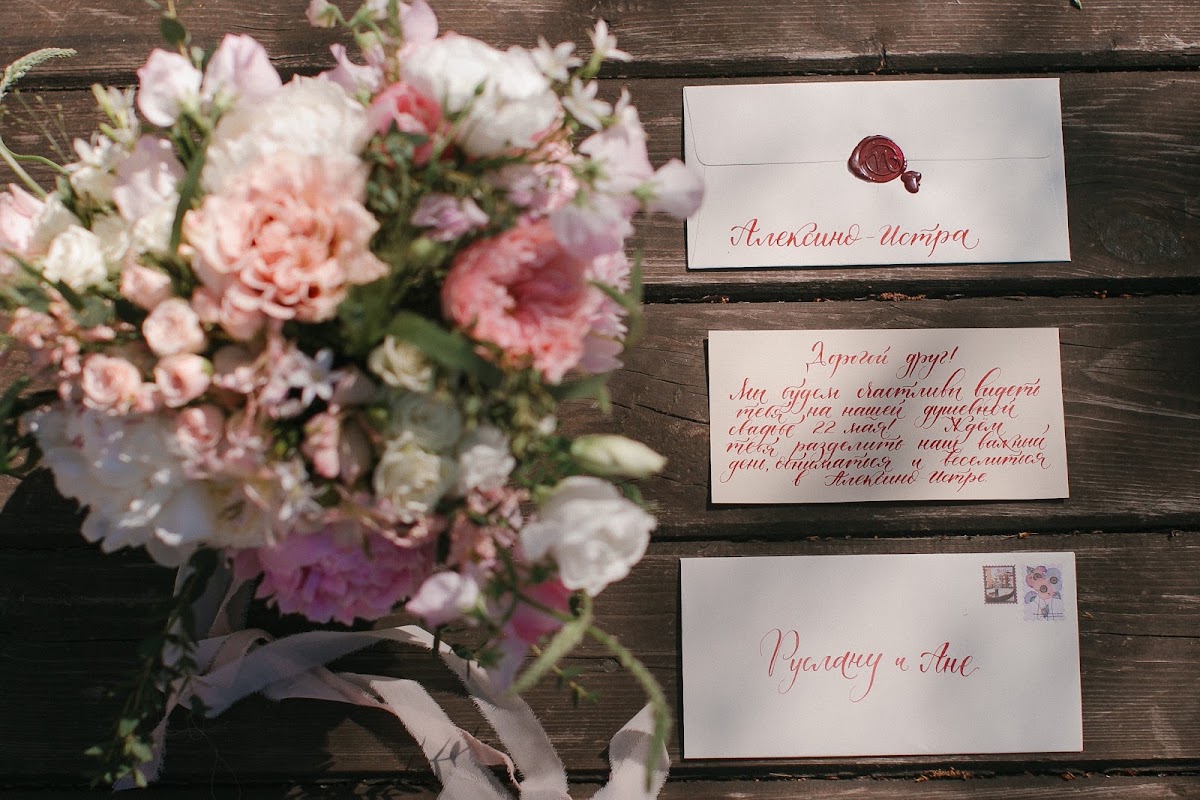 Алексино-Истра
Дорогой друг!
Мы будем счастливы видеть
тебя на нашей душевной
свадьбе 22 мая! Ждем
тебя разделить наш важный
день, обниматься и веселиться
в Алексино-Истре.
Руслану и Ане